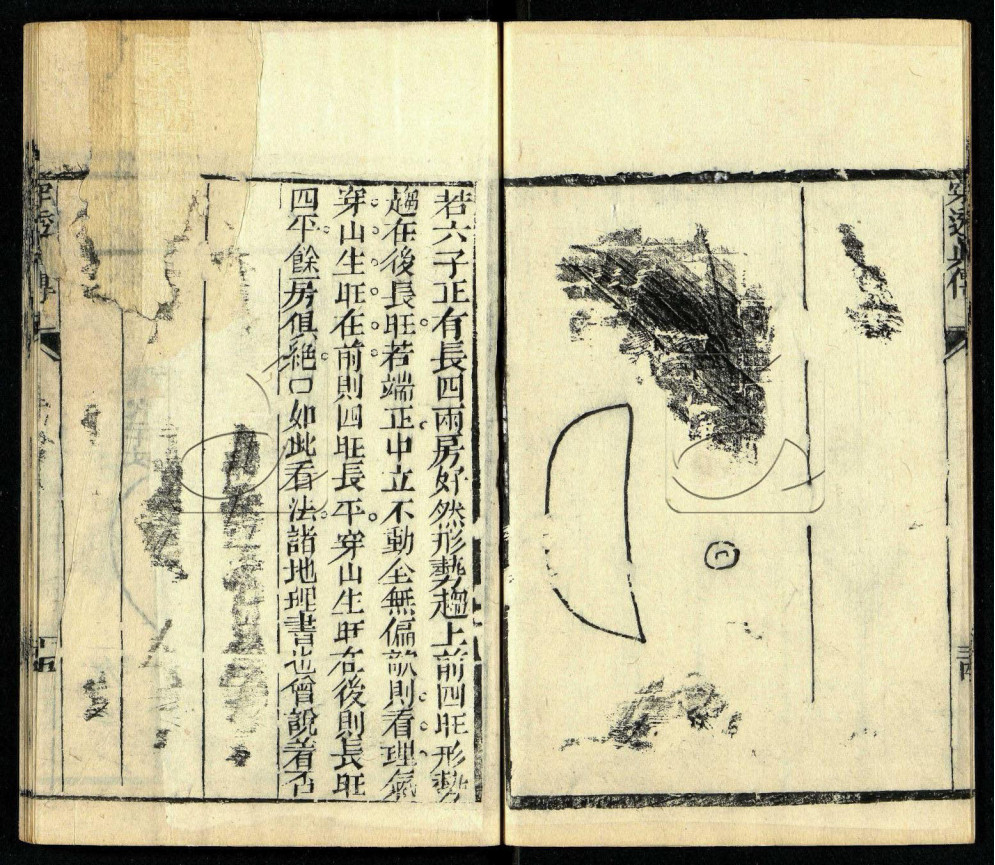 穿透真傳
三四
若六子正有長四兩房好然形勢趨上前四旺形勢
趨在後長旺若端正中立不動全無偏欹則看理氣
穿山生旺在前則四旺長平穿山生旺在後則長旺
四平餘房俱絕口如此看法諸地理書也曾說著否
穿透 傳
十五